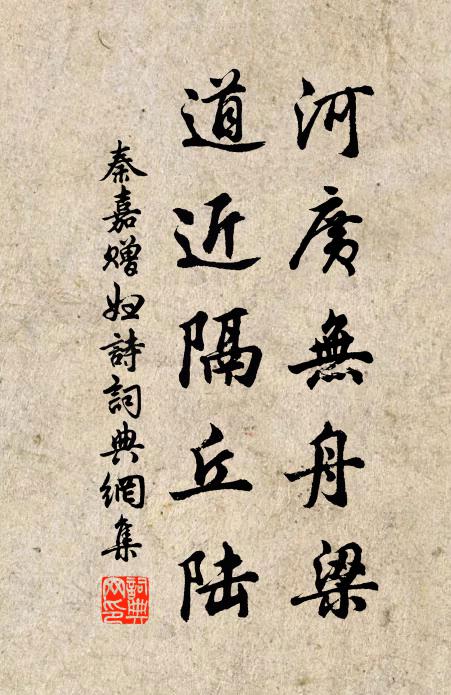 河廣無舟梁
道近隔丘陆
秦嘉贈妇詩詞典網集
詞典網印